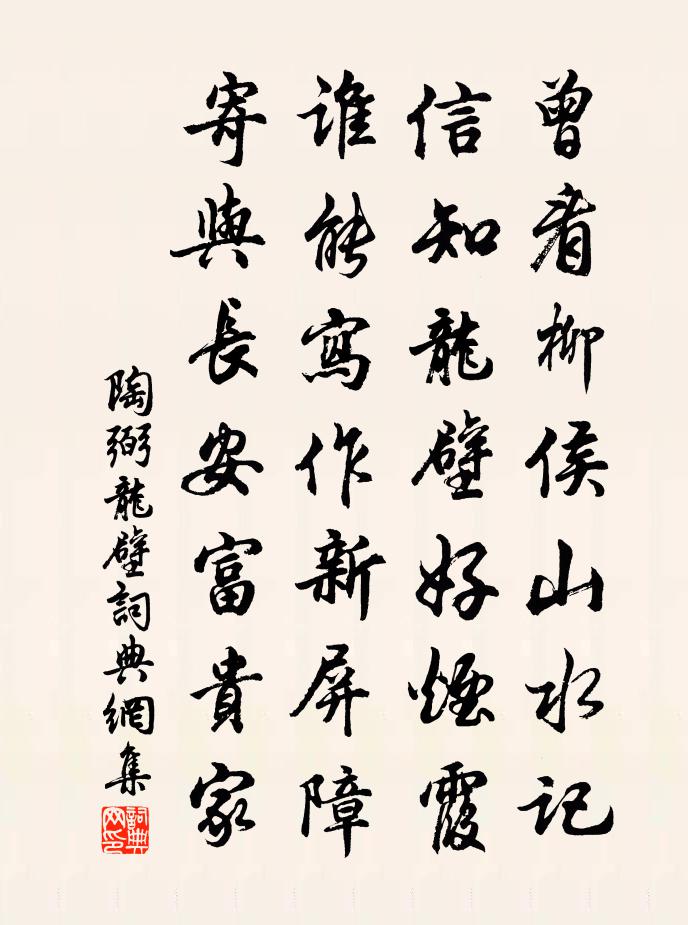 曾看柳侯山水記
信知龍壁好煙霞
誰能寫作新屏障
寄與長安富貴家
陶弼龍壁詞典網集
詞典
网